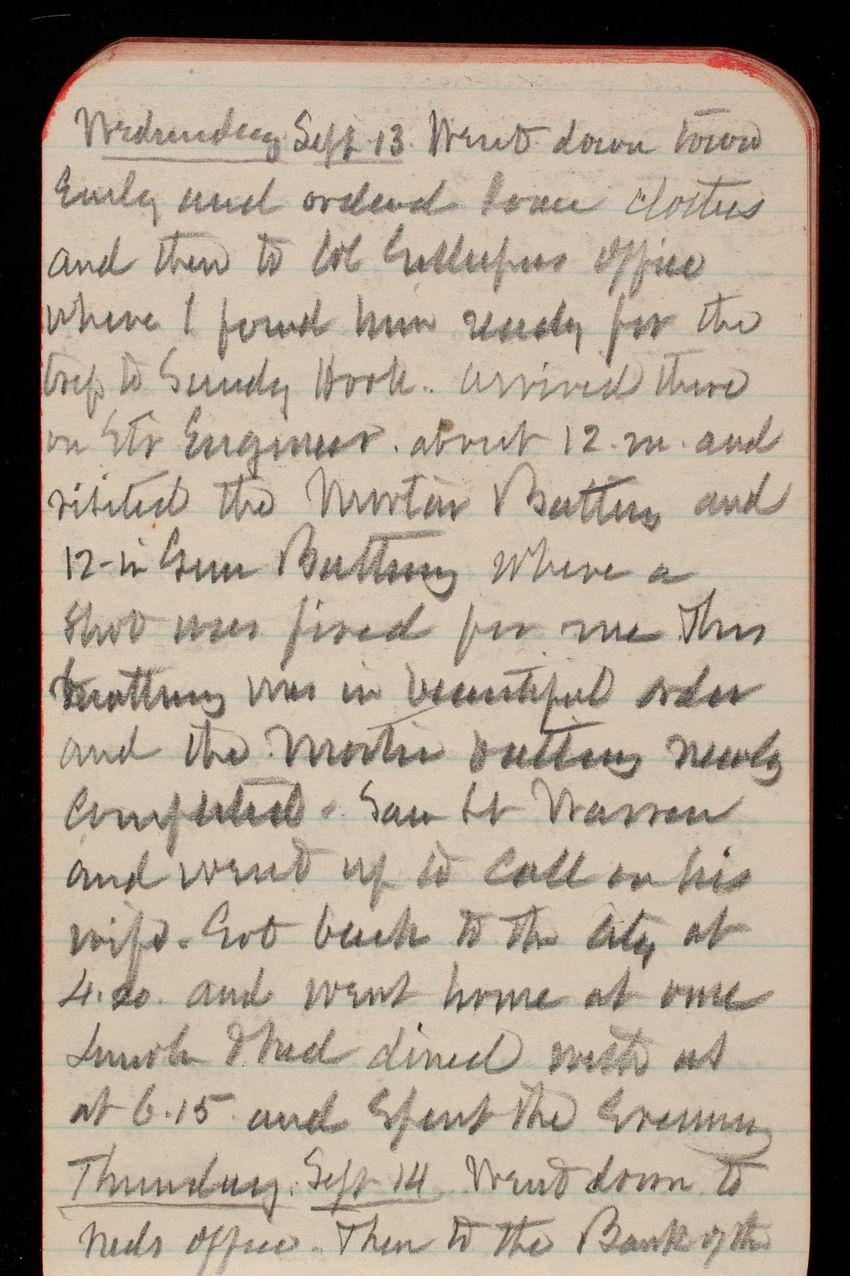 Wednesday Sept 13. Went down town
Early and ordered some clothes
and then to Col Gillespies office
where I found him ready for the
trip to Sandy Hook. arrived there
on Str Engineer. about 12. m. and
visited the Mortar Battery and
12-in Gun Battery where a
Shot was fired for me This
battery was in beautiful order
and the Mortar battery newly
Completed. Saw Lt Warren
and went up to Call on his
wife. Got back to the City at
4. and went home at once
& Ned dined with us
at 6.15 and Spent the Evening
Thursday. Sept 14 Went down to
Neds office. Then to the Bank of the